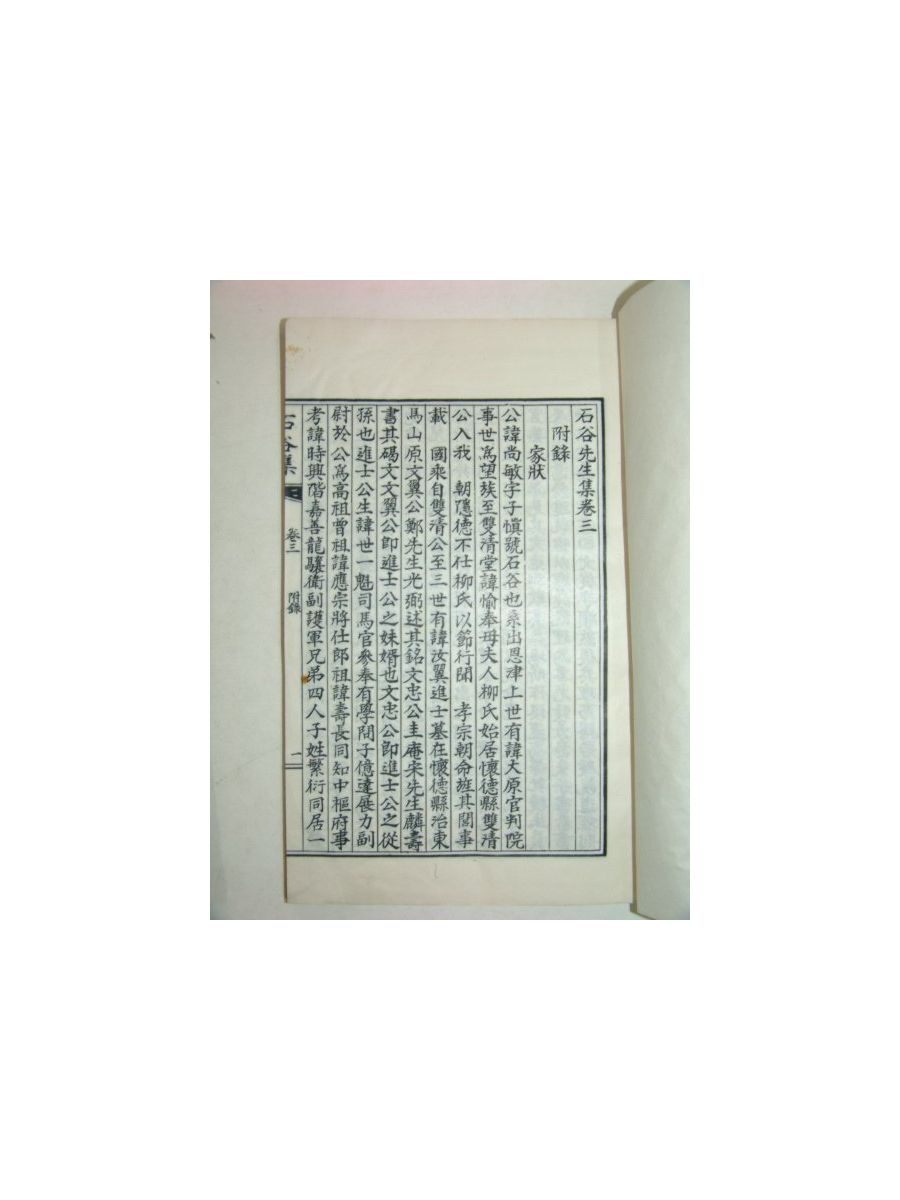 石谷先生集卷三
附錄
家狀
公諱尚敏字子愼號石谷也系出恩津上世有諱大原官判院
事世爲望族至雙淸堂諱愉奉母夫人柳氏始居懷德縣雙淸
公入我　朝隱德不仕柳氏以節行聞　孝宗朝命旌其閭事
載　國乘自雙淸公至三世有諱汝翼進士墓在懷德縣治東
馬山原文翼公鄭先生光弼述其銘文忠公圭庵宋先生麟壽
書其碣文文翼公卽進士公之妹婿也文忠公卽進士公之從
孫也進士公生諱世一魁司馬官參奉有學問子億達展力副
尉於公爲高祖曾祖諱應宗將仕郎祖諱壽長同知中樞府事
考諱時興階嘉善龍驤衛副護軍兄弟四人子姓繁衍同居一
石谷集
卷三
附錄
一